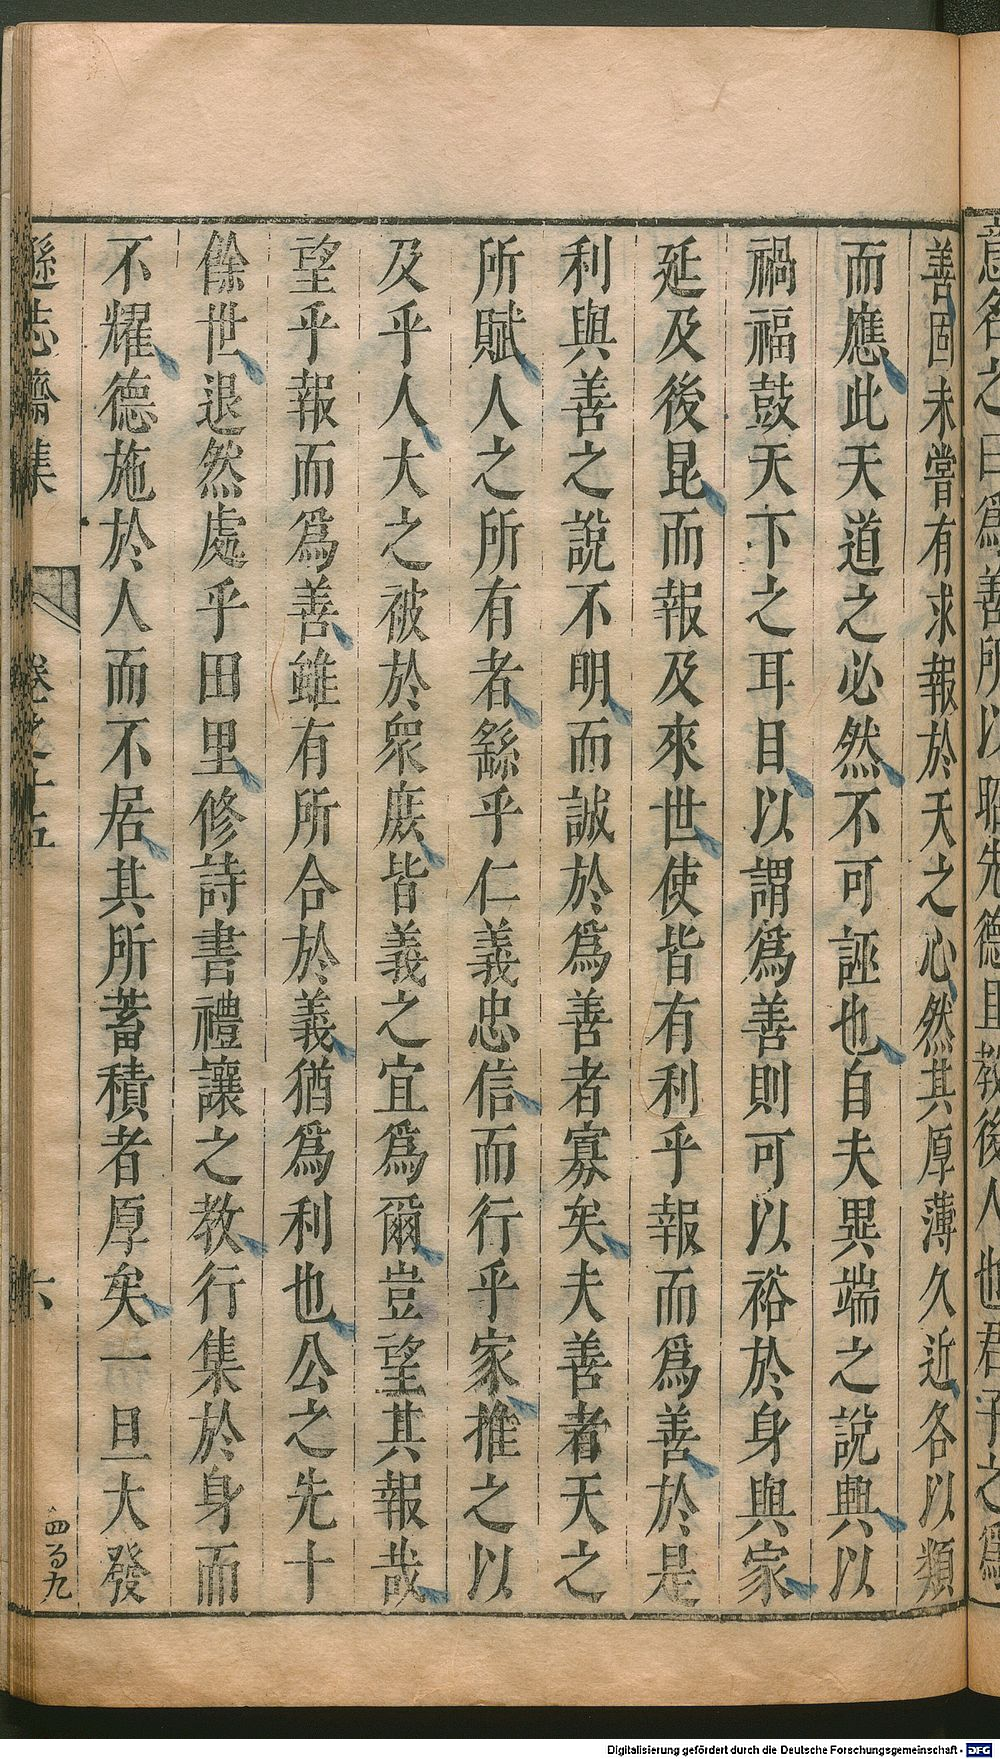 意名之曰爲善所以昭先德且教後人也君子之爲
善固未嘗有求報於天之心然其厚薄久近各以類
而應此天道之必然不可誣也自夫異端之說興以
禍福鼓天下之耳目以謂爲善則可以裕於身與家
延及後昆而報及來世使皆有利乎報而爲善於是
利與善之說不明而誠於爲善者寡矣夫善者天之
所賦人之所有者繇乎仁義忠信而行乎家推之以
及乎人大之被於衆庶皆義之宜爲爾豈望其報哉
望乎報而爲善雖有所合於義猶爲利也公之先十
餘世退然處乎田里修詩書禮讓之教行集於身而
不耀德施於人而不居其所蓄積者厚矣一旦大發
遜志齋集 卷之十五 六 四百九
Digitalisierung gefördert durch die Deutsche Forschungsgemeinschaft - DFG